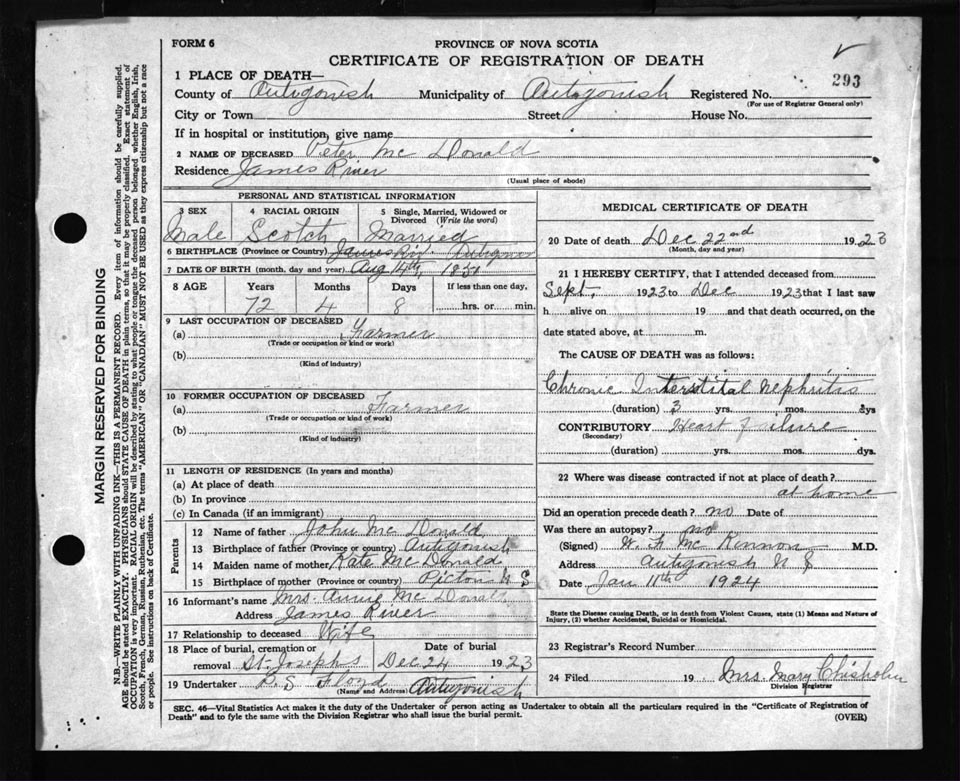 FORM 6
PROVINCE OF NOVA SCOTIA
CERTIFICATE OF REGISTRATION OF DEATH
293
1 PLACE OF DEATH—
County of Antigonish Municipality of Antigonish Registered No.
(For use of Registrar General only)
City or Town Street House No.
If in hospital or institution, give name
2 NAME OF DECEASED Peter Mc Donald
Residence James River
(Usual place of abode)
PERSONAL AND STATISTICAL INFORMATION
3 SEX 4 RACIAL ORIGIN 5 Single, Married, Widowed or Divorced (Write the word)
Male Scotch Married
6 BIRTHPLACE (Province or Country) James Riv Antigonish
7 DATE OF BIRTH (month, day and year) Aug 14th, 1851
8 AGE Years Months Days If less than one day,
72 4 8 hrs. or min.
9 LAST OCCUPATION OF DECEASED
(a) Farmer
(Trade or occupation or kind or work)
(b)
(Kind of industry)
10 FORMER OCCUPATION OF DECEASED
(a) Farmer
(Trade or occupation or kind of work)
(b)
(Kind of industry)
11 LENGTH OF RESIDENCE (In years and months)
(a) At place of death
(b) In province
(c) In Canada (if an immigrant)
Parents
12 Name of father John Mc Donald
13 Birthplace of father (Province or country) Antigonish
14 Maiden name of mother Kate Mc Donald
15 Birthplace of mother (Province or country) Pictou N S
16 Informant's name Mrs. Annie Mc Donald
Address James River
17 Relationship to deceased Wife
18 Place of burial, cremation or removal St. Josephs Date of burial Dec 24 1923
19 Undertaker R. S Floyd Antigonish
(Name and Address)
MEDICAL CERTIFICATE OF DEATH
20 Date of death Dec 22nd 1923
(Month, day and year)
21 I HEREBY CERTIFY, that I attended deceased from
Sept. 1923 to Dec 1923 that I last saw
h alive on 19 and that death occurred, on the
date stated above, at m.
The CAUSE OF DEATH was as follows:
Chronic Interstital Nephritis
(duration) 3 yrs. mos. dys
CONTRIBUTORY Heart failure
(Secondary)
(duration) yrs. mos. dys.
22 Where was disease contracted if not at place of death?
at home
Did an operation precede death? no Date of
Was there an autopsy? no
(Signed) W. F. Mc Kinnon M.D.
Address Antigonish N S
Date Jan 11th 1924
State the Disease causing Death, or in death from Violent Causes, state (1) Means and Nature of
Injury, (2) whether Accidental, Suicidal or Homicidal.
23 Registrar's Record Number
24 Filed 19 Mrs. Mary Chisholm
Division Registrar
SEC. 46—Vital Statistics Act makes it the duty of the Undertaker or person acting as Undertaker to obtain all the particulars required in the "Certificate of Registration of
Death" and to fyle the same with the Division Registrar who shall issue the burial permit. (OVER)
MARGIN RESERVED FOR BINDING
N.B.—WRITE PLAINLY WITH UNFADING INK—THIS IS A PERMANENT RECORD. Every item of information should be carefully supplied.
AGE should be stated EXACTLY. PHYSICIANS should STATE CAUSE OF DEATH in plain terms, so that it may be properly classified. Exact statement of
OCCUPATION is very important. RACIAL ORIGIN will be described by stating to what people or tongue the deceased person belonged whether English, Irish,
Scotch, French, German, Russian, Ruthenian, etc. The terms "AMERICAN" OR "CANADIAN" MUST NOT BE USED as they express citizenship but not a race
or people. See instructions on back of Certificate.